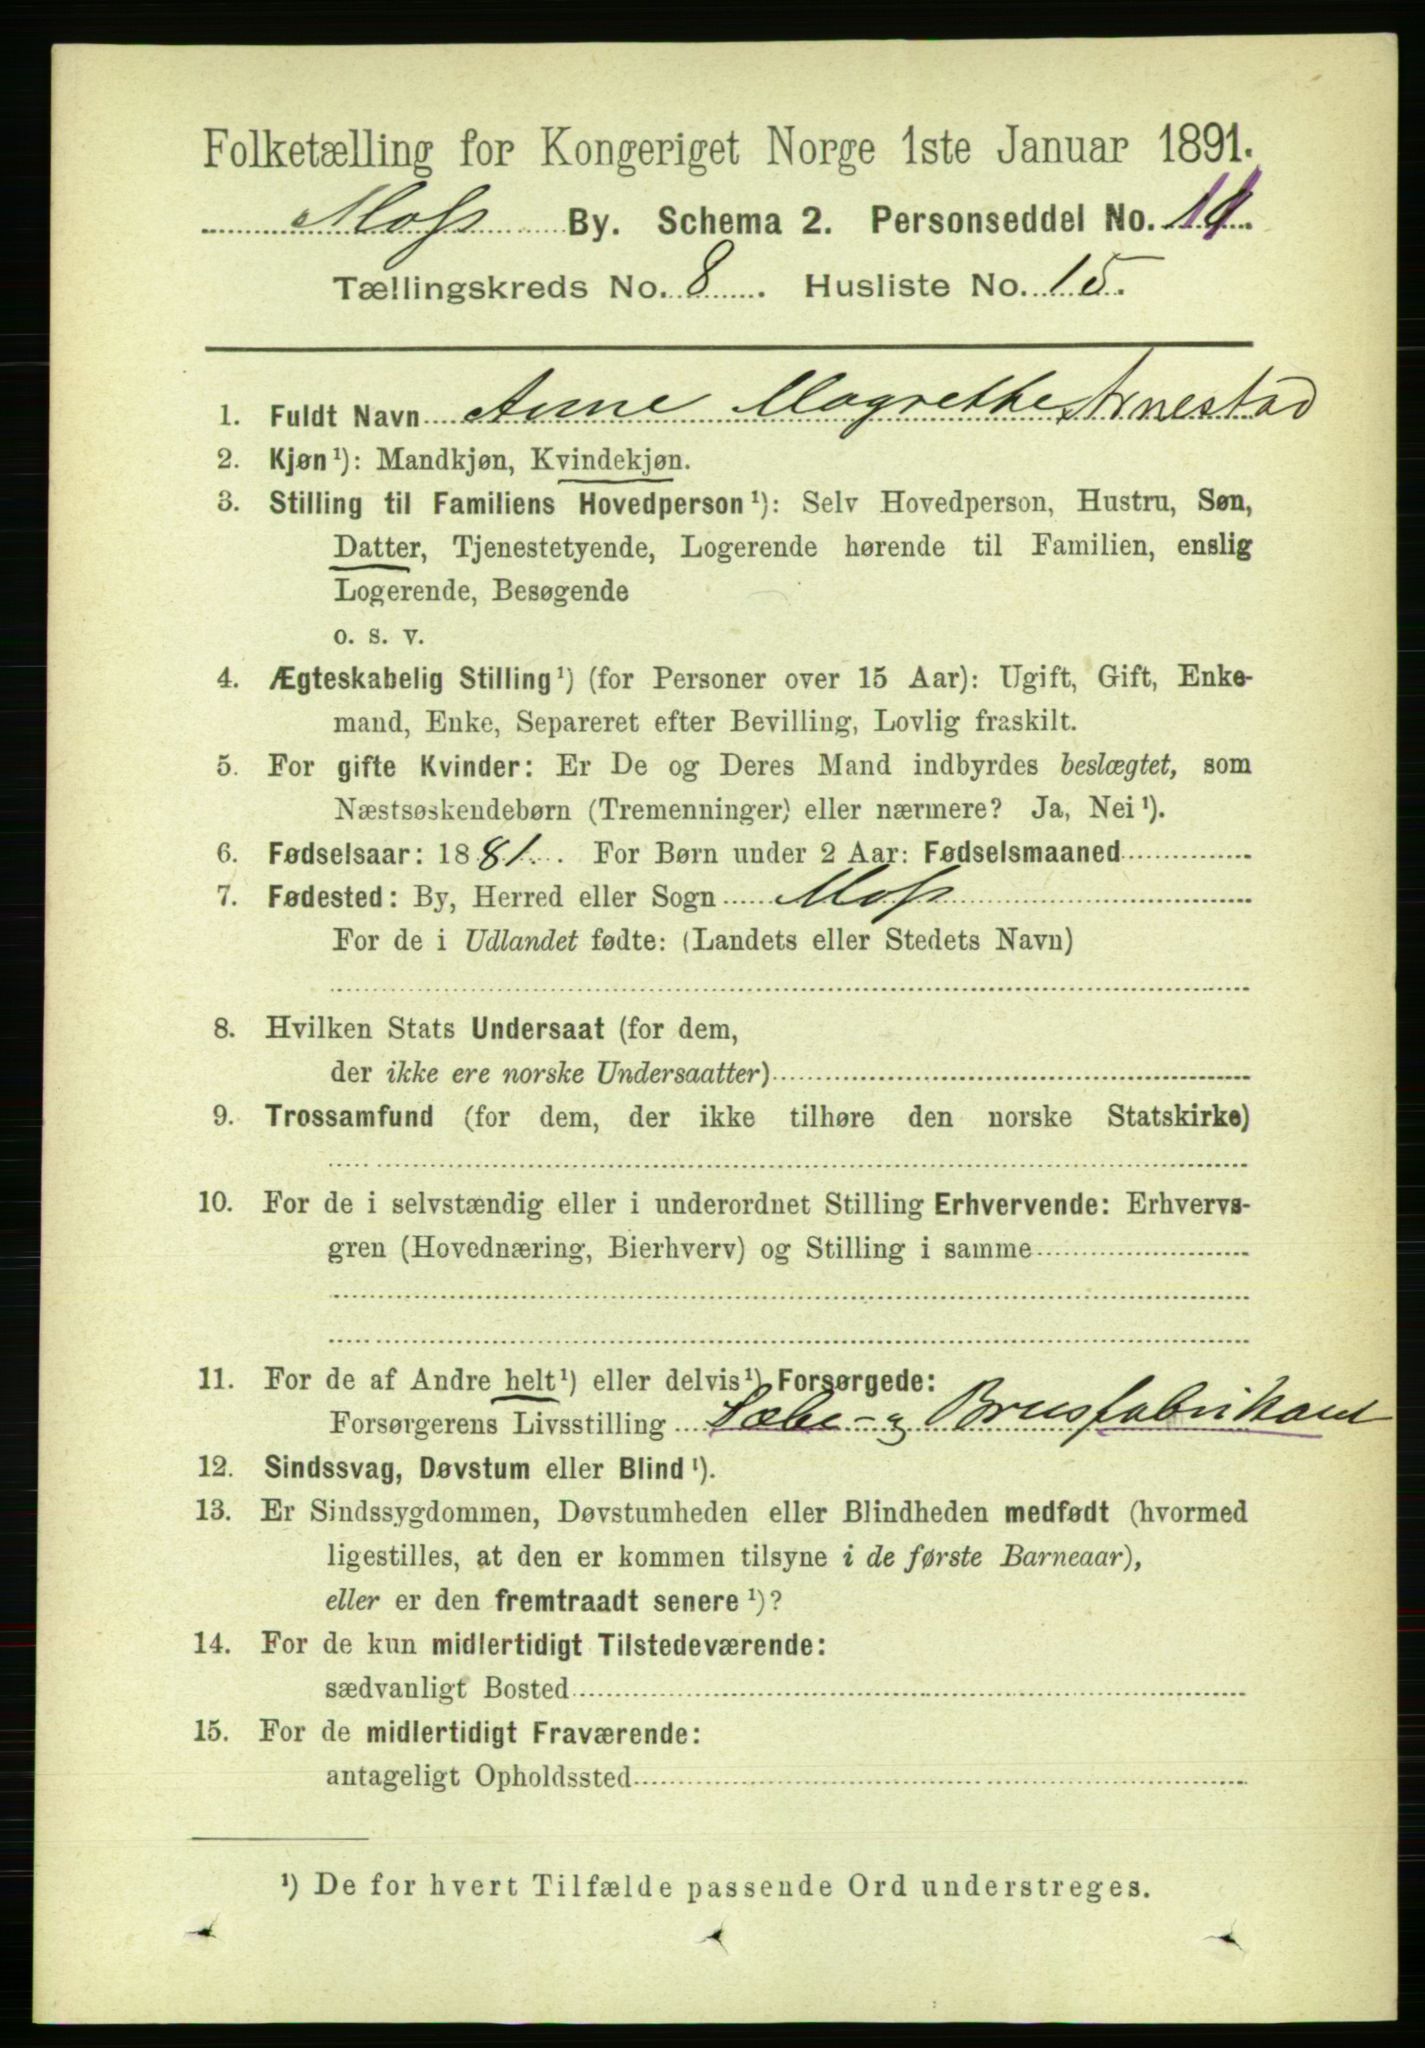 Folketælling for Kongeriget Norge 1ste Januar 1891.
Moss By. Schema 2. Personseddel No. 14.
Tællingskreds No. 8. Husliste No. 15.
1. Fuldt Navn Anne Magrethe Arnestad
2. Kjøn ¹): Mandkjøn, Kvindekjøn.
3. Stilling til Familiens Hovedperson ¹): Selv Hovedperson, Hustru, Søn,
Datter, Tjenestetyende, Logerende hørende til Familien, enslig
Logerende, Besøgende
o. s. v.
4. Ægteskabelig Stilling ¹) (for Personer over 15 Aar): Ugift, Gift, Enke-
mand, Enke, Separeret efter Bevilling, Lovlig fraskilt.
5. For gifte Kvinder: Er De og Deres Mand indbyrdes beslægtet, som
Næstsøskendebørn (Tremenninger) eller nærmere? Ja, Nei ¹).
6. Fødselsaar: 1881. For Børn under 2 Aar: Fødselsmaaned
7. Fødested: By, Herred eller Sogn Moss
For de i Udlandet fødte: (Landets eller Stedets Navn)
8. Hvilken Stats Undersaat (for dem,
der ikke ere norske Undersaatter)
9. Trossamfund (for dem, der ikke tilhøre den norske Statskirke)
10. For de i selvstændig eller i underordnet Stilling Erhvervende: Erhvervs-
gren (Hovednæring, Bierhverv) og Stilling i samme
11. For de af Andre helt ¹) eller delvis ¹) Forsørgede:
Forsørgerens Livsstilling Sæbe- og Brusfabrikant
12. Sindssvag, Døvstum eller Blind ¹).
13. Er Sindssygdommen, Døvstumheden eller Blindheden medfødt (hvormed
ligestilles, at den er kommen tilsyne i de første Barneaar),
eller er den fremtraadt senere ¹)?
14. For de kun midlertidigt Tilstedeværende:
sædvanligt Bosted
15. For de midlertidigt Fraværende:
antageligt Opholdssted
¹) De for hvert Tilfælde passende Ord understreges.